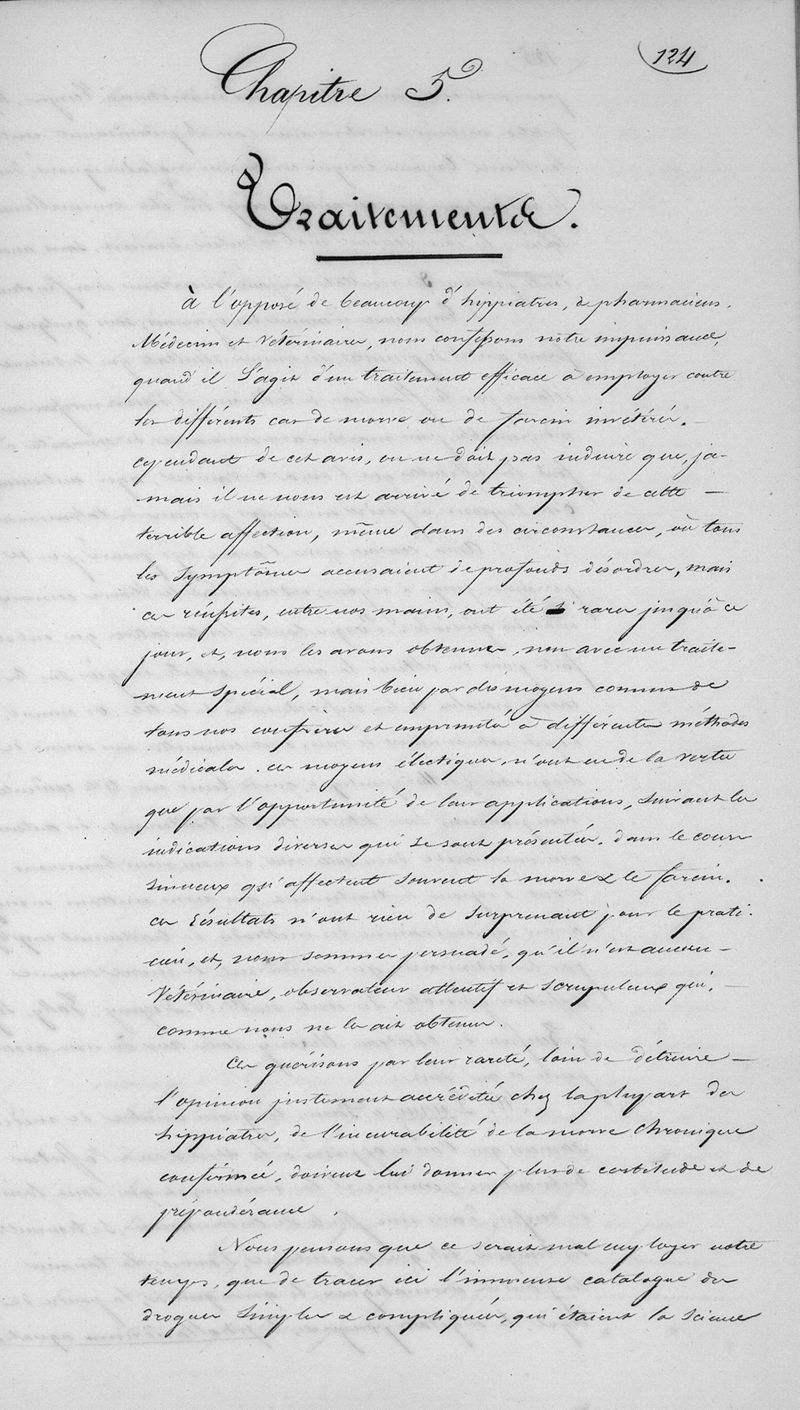 124
Chapitre 5.
Traitements.
À l'opposé de beaucoup d'hippiatres, de pharmaciens,
Médecins et Vétérinaires, nous confessons notre impuissance,
quand il s'agit d'un traitement efficace à employer contre
les différents cas de morve ou de farcin invétéré. –
cependant de cet avis, on ne doit pas induire que, ja-
mais il ne nous est arrivé de triompher de cette –
terrible affection, même dans des circonstances, où tous
les symptômes accusaient de profonds désordres, mais
ces réussites, entre nos mains, ont été si rares jusqu'à ce
jour, et, nous les avons obtenues, non avec un traite-
ment spécial, mais bien par des moyens connus de
tous nos confrères et empruntés à différentes méthodes
médicales. ces moyens électiques, n'ont eu de la vertu
que par l'opportunité de leur applications, suivant les
indications diverses qui se sont présentées, dans le cours
sinueux qu'affectent souvent la morve & le farcin.
ces résultats n'ont rien de surprenant pour le prati-
cien, et, nous sommes persuadé, qu'il n'est aucun –
Vétérinaire, observateur attentif et scrupuleux qui, –
comme nous ne les ait obtenus.
Ces guérisons par leur rareté, loin de détruire –
l'opinion justement accréditée chez la plupart des
hippiatres, de l'incurabilité de la morve chronique
confirmée, doivent lui donner plus de certitude et de
prépondérance.
Nous pensons que ce serait mal employer notre
temps, que de tracer ici l'immense catalogue des
drogues simples & compliquées, qui étaient la science